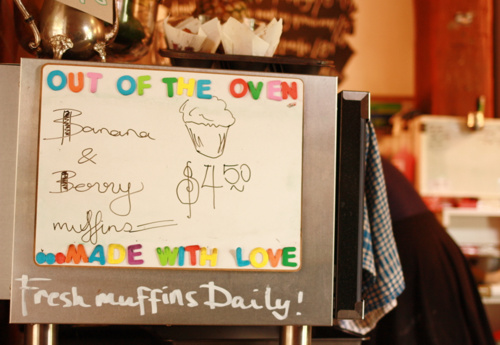 OUT OF THE OVEN
Banana
&
Berry
muffins
$4.50
...MADE WITH LOVE
Fresh muffins Daily!